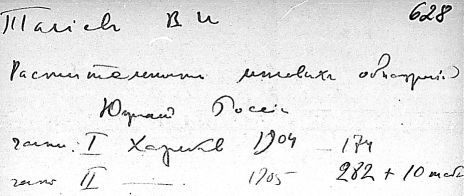 Талиев В И 628
Растительность меловых обнажений
Южной России
часть I Харьков 1904 — 174
часть II — 1905 282 + 10 табл